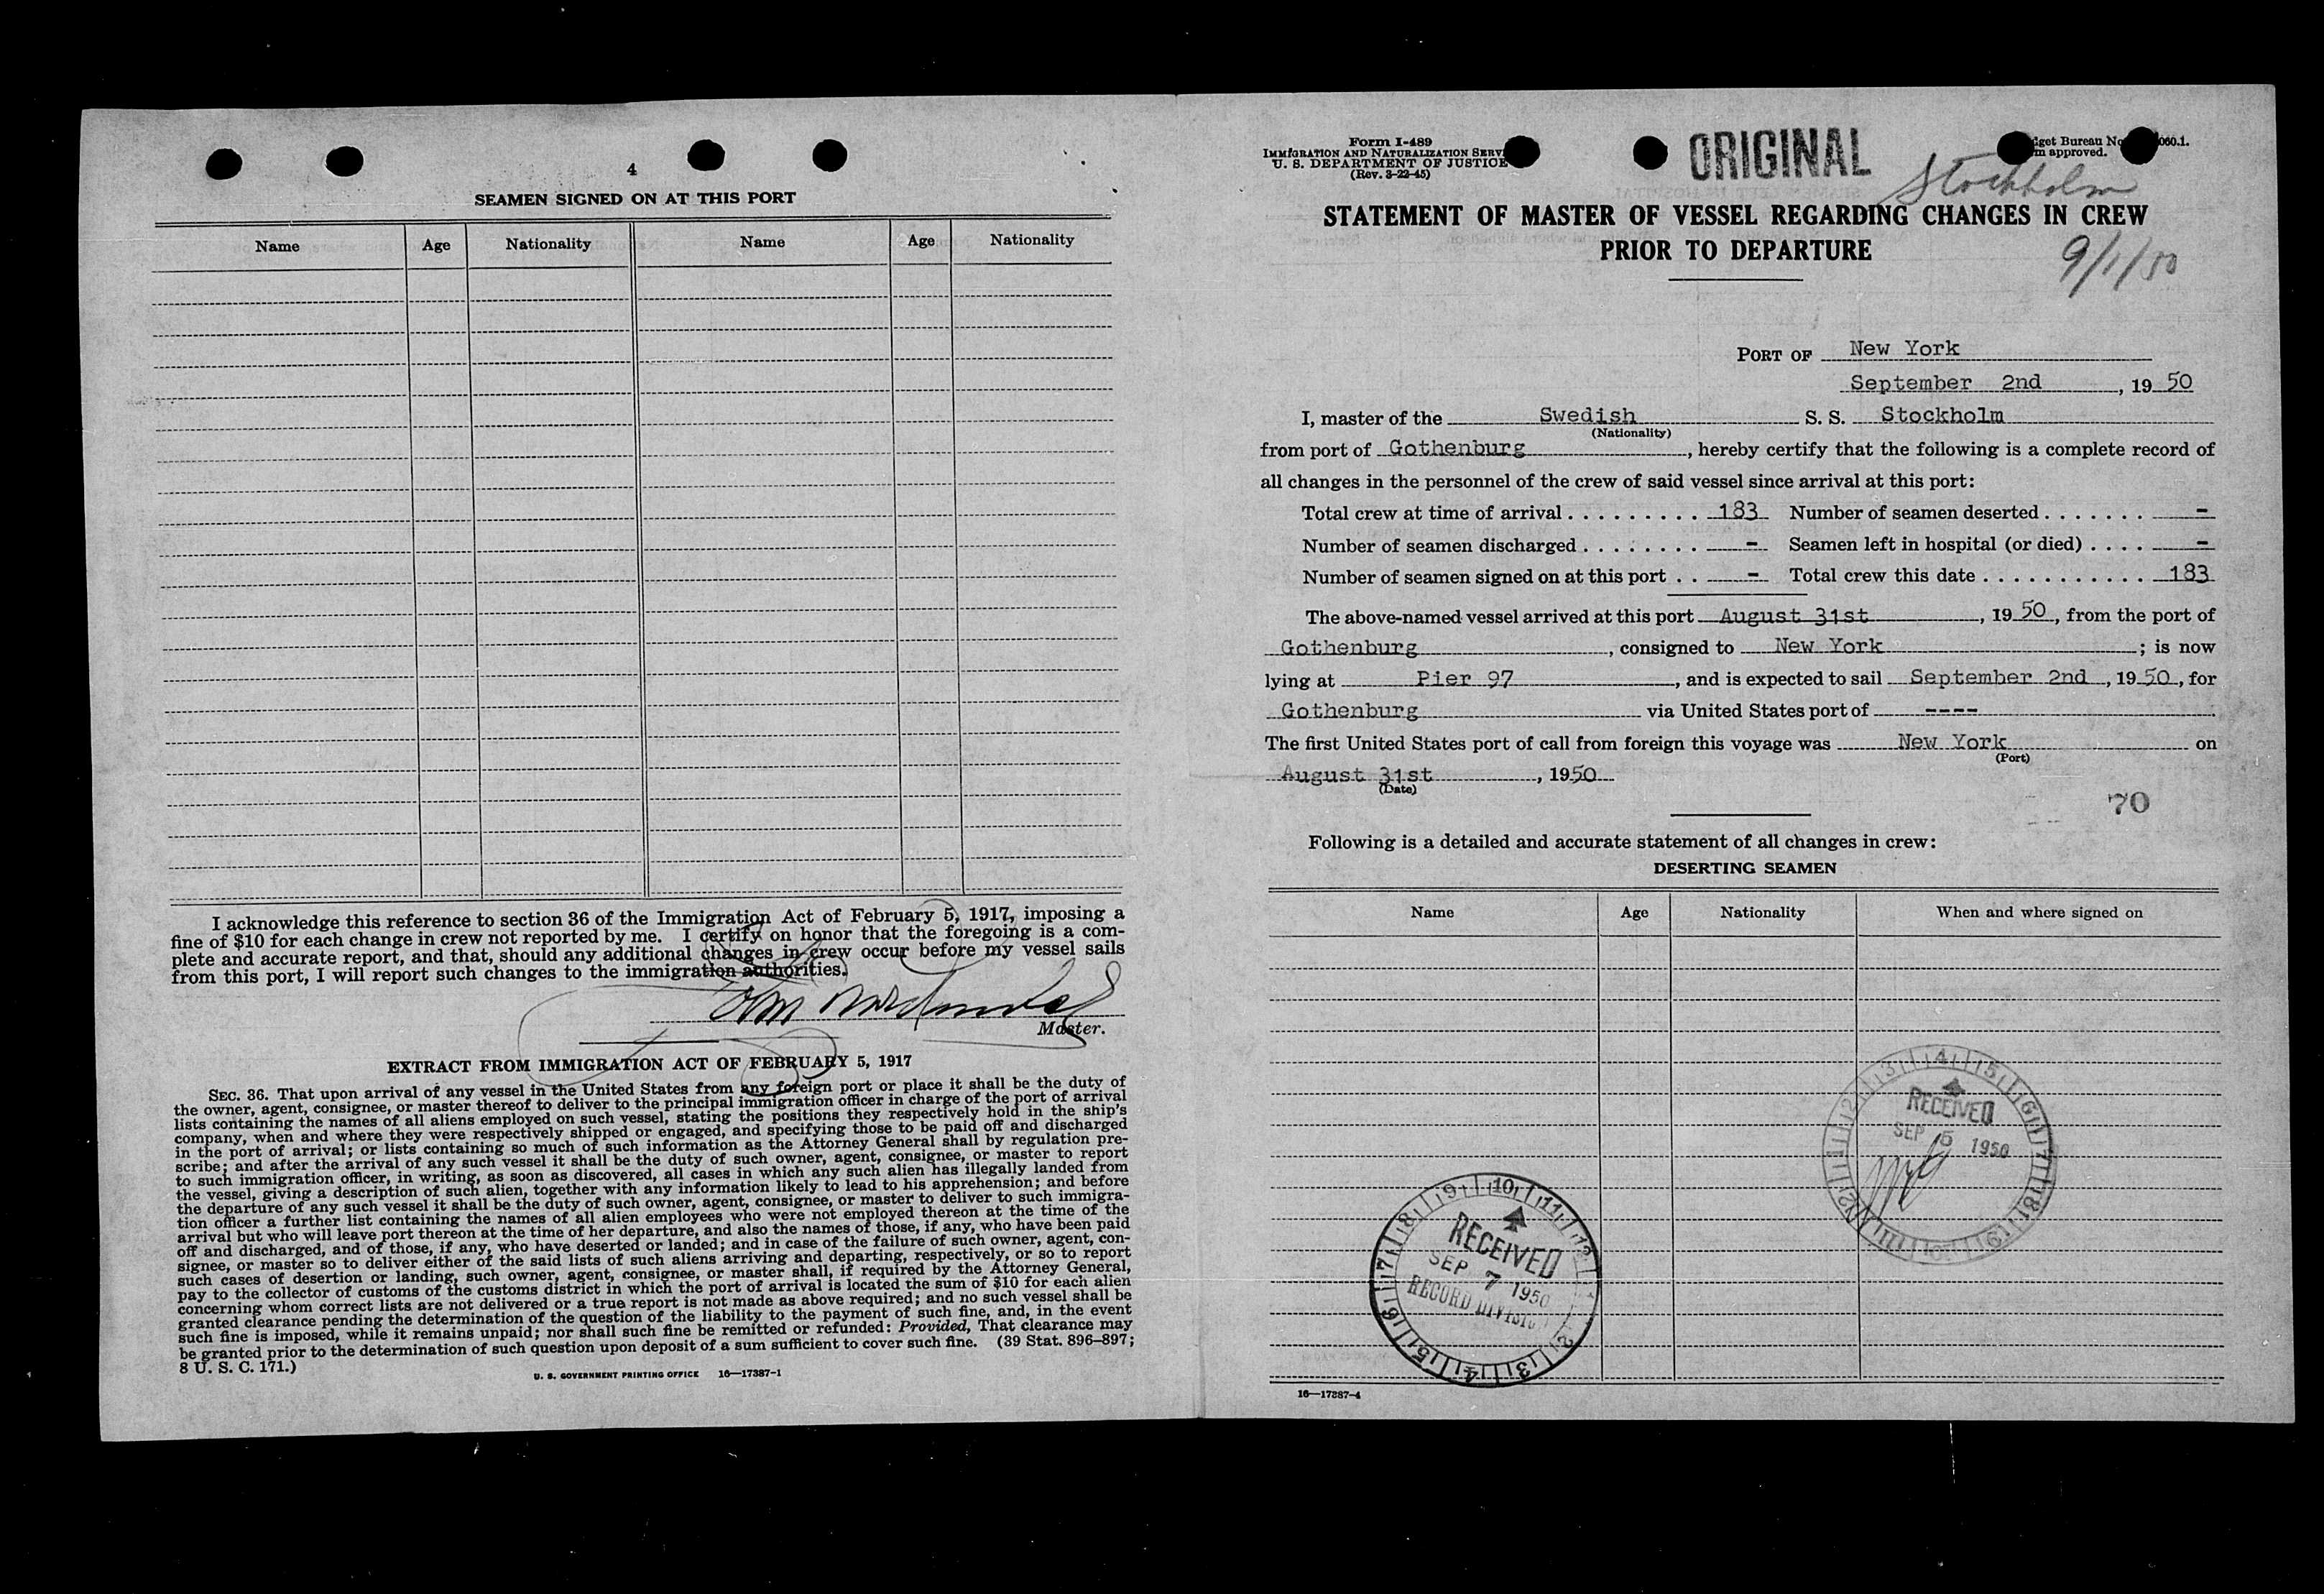 4
SEAMEN SIGNED ON AT THIS PORT
Name Age Nationality Name Age Nationality
I acknowledge this reference to section 36 of the Immigration Act of February 5, 1917, imposing a
fine of $10 for each change in crew not reported by me. I certify on honor that the foregoing is a com-
plete and accurate report, and that, should any additional changes in crew occur before my vessel sails
from this port, I will report such changes to the immigration authorities.
Master.
EXTRACT FROM IMMIGRATION ACT OF FEBRUARY 5, 1917
SEC. 36. That upon arrival of any vessel in the United States from any foreign port or place it shall be the duty of
the owner, agent, consignee, or master thereof to deliver to the principal immigration officer in charge of the port of arrival
lists containing the names of all aliens employed on such vessel, stating the positions they respectively hold in the ship's
company, when and where they were respectively shipped or engaged, and specifying those to be paid off and discharged
in the port of arrival; or lists containing so much of such information as the Attorney General shall by regulation pre-
scribe; and after the arrival of any such vessel it shall be the duty of such owner, agent, consignee, or master to report
to such immigration officer, in writing, as soon as discovered, all cases in which any such alien has illegally landed from
the vessel, giving a description of such alien, together with any information likely to lead to his apprehension; and before
the departure of any such vessel it shall be the duty of such owner, agent, consignee, or master to deliver to such immigra-
tion officer a further list containing the names of all alien employees who were not employed thereon at the time of the
arrival but who will leave port thereon at the time of her departure, and also the names of those, if any, who have been paid
off and discharged, and of those, if any, who have deserted or landed; and in case of the failure of such owner, agent, con-
signee, or master so to deliver either of the said lists of such aliens arriving and departing, respectively, or so to report
such cases of desertion or landing, such owner, agent, consignee, or master shall, if required by the Attorney General,
pay to the collector of customs of the customs district in which the port of arrival is located the sum of $10 for each alien
concerning whom correct lists are not delivered or a true report is not made as above required; and no such vessel shall be
granted clearance pending the determination of the question of the liability to the payment of such fine, and, in the event
such fine is imposed, while it remains unpaid; nor shall such fine be remitted or refunded: Provided, That clearance may
be granted prior to the determination of such question upon deposit of a sum sufficient to cover such fine. (39 Stat. 896–897;
8 U. S. C. 171.)
U. S. GOVERNMENT PRINTING OFFICE 16—17387-1
Form I-489
IMMIGRATION AND NATURALIZATION
U. S. DEPARTMENT OF JUSTICE
(Rev. 3-22-45)
ORIGINAL
Bureau
approved.
Stockholm
STATEMENT OF MASTER OF VESSEL REGARDING CHANGES IN CREW
PRIOR TO DEPARTURE
9/1/50
PORT OF New York
September 2nd, 1950
I, master of the Swedish S. S. Stockholm
(Nationality)
from port of Gothenburg, hereby certify that the following is a complete record of
all changes in the personnel of the crew of said vessel since arrival at this port:
Total crew at time of arrival . . . . . . . . . 183 Number of seamen deserted . . . . . . . -
Number of seamen discharged . . . . . . . . - Seamen left in hospital (or died) . . . . -
Number of seamen signed on at this port . . - Total crew this date . . . . . . . . . . . 183
The above-named vessel arrived at this port August 31st, 1950, from the port of
Gothenburg, consigned to New York; is now
lying at Pier 97, and is expected to sail September 2nd, 1950, for
Gothenburg via United States port of ----
The first United States port of call from foreign this voyage was New York on
(Port)
August 31st, 1950
(Date)
70
Following is a detailed and accurate statement of all changes in crew:
DESERTING SEAMEN
Name Age Nationality When and where signed on
1 2 3 4 5 6 7 8 9 10 11 12
RECEIVED
SEP 5 1950
1 2 3 4 5 6 7 8 9 10 11 12
RECEIVED
SEP 7 1950
RECORD DIVISION
16—17387-4